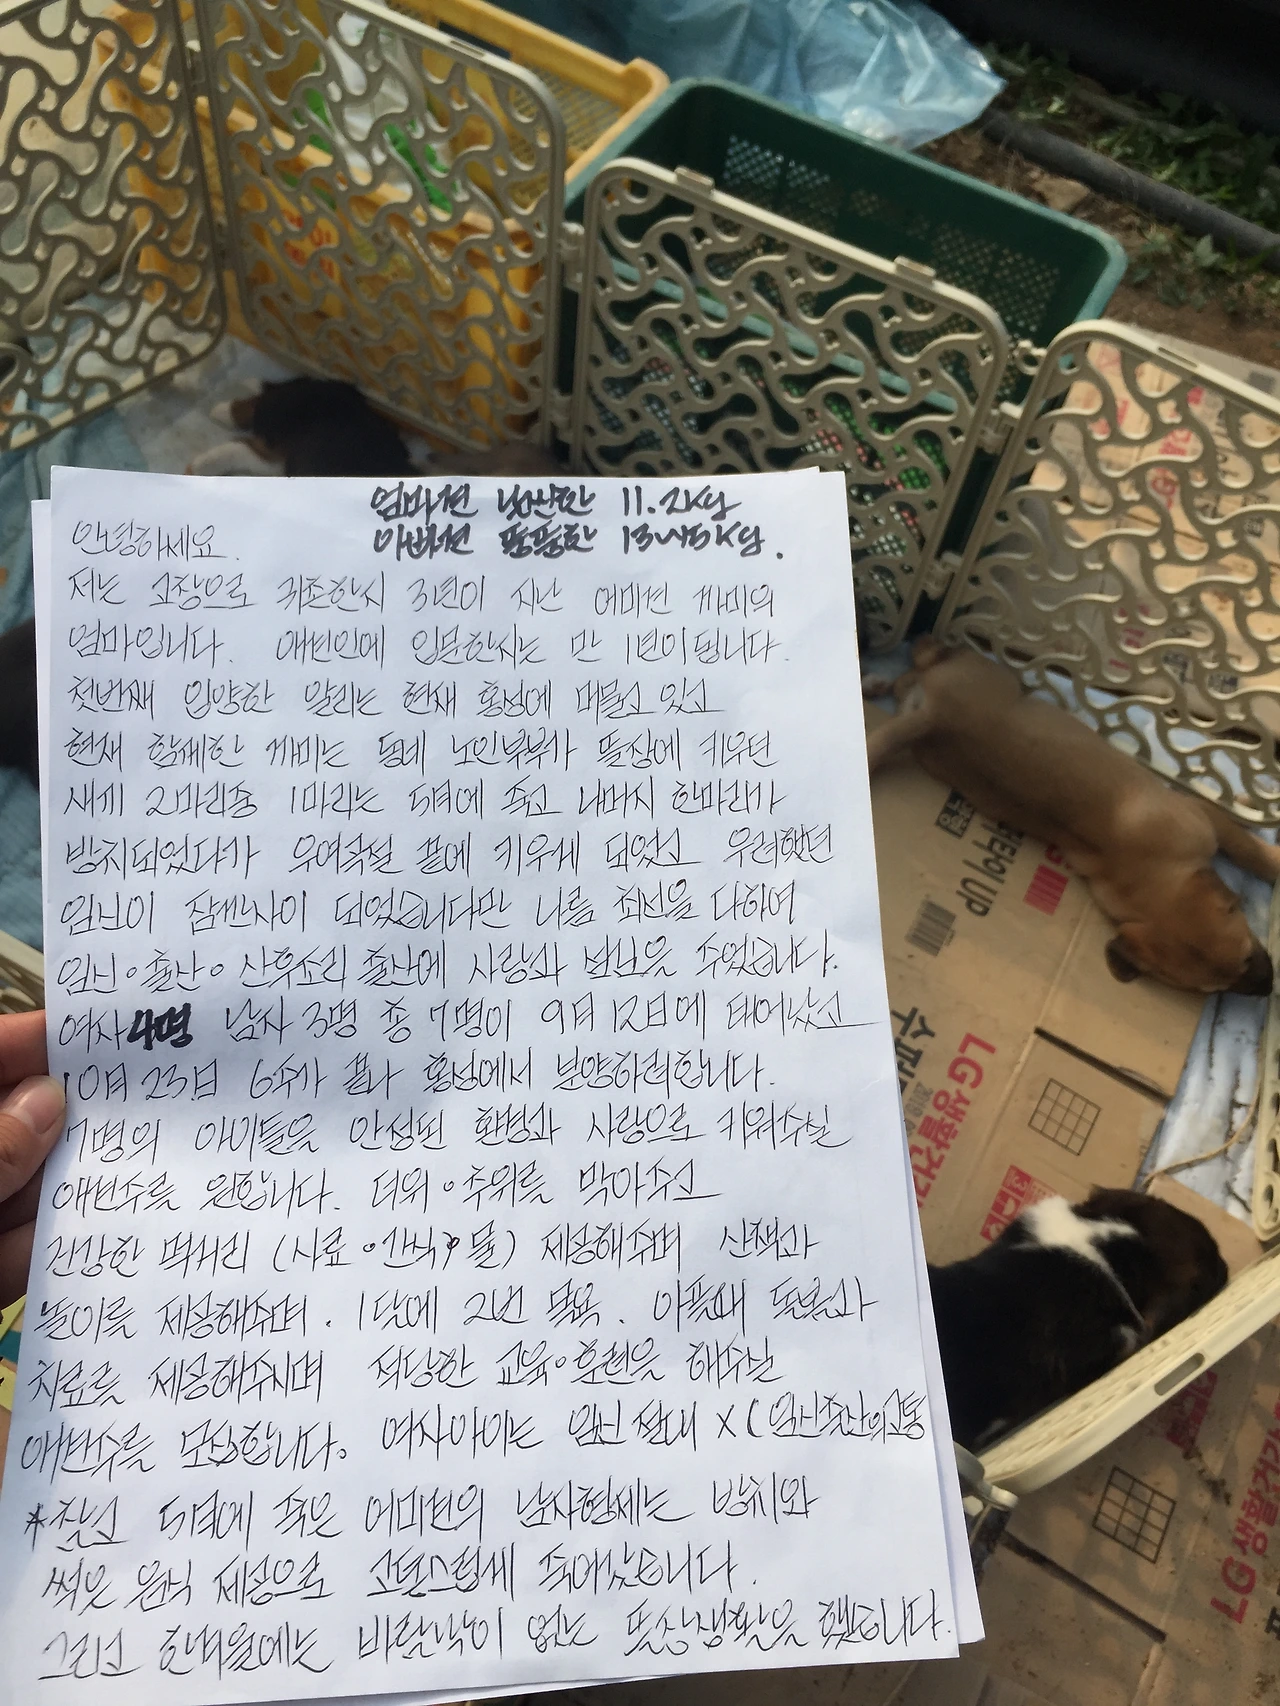 엄마견 날씬한 11.2kg
아빠견 뚱뚱한 13~15kg.
안녕하세요.
저는 고장으로 귀촌한지 3년이 지난 어미견 까미의
엄마입니다. 애견인에 입문한지는 만 1년이 됩니다.
첫번째 입양한 알리는 현재 홍성에 머물고 있고
현재 함께한 까미는 동네 노인부부가 뜰장에 키우던
새끼 2마리중 1마리는 5月에 죽고 나머지 한마리가
방치되었다가 우여곡절 끝에 키우게 되었고 우려했던
임신이 잠깐사이 되었습니다만 나름 최선을 다하여
임신·출산·산후조리 출산에 사랑과 정성을 주었습니다.
여자4명 남자 3명 총 7명이 9月 12日에 태어났고
10月 23日 6주가 끝나 홍성에서 분양하려합니다.
7명의 아이들을 안정된 환경과 사랑으로 키워주실
애견주를 원합니다. 더위·추위를 막아주고
건강한 먹거리 (사료·간식, 물) 제공해주며 산책과
놀이를 제공해주며. 1달에 2번 목욕. 아플때 돌봄과
치료를 제공해주시며 적당한 교육·훈련을 해주실
애견주를 모십합니다. 여자아이는 임신 절대 X (임신출산의고통
*잘난 5月에 죽은 어미견의 남자형제는 방치와
썩은 음식 제공으로 고통스럽게 죽어갔습니다.
그리고 한여름에는 바람막이 없는 뜰장생활을 했습니다.
LG생활건강
수퍼타이 UP
LG생활건강